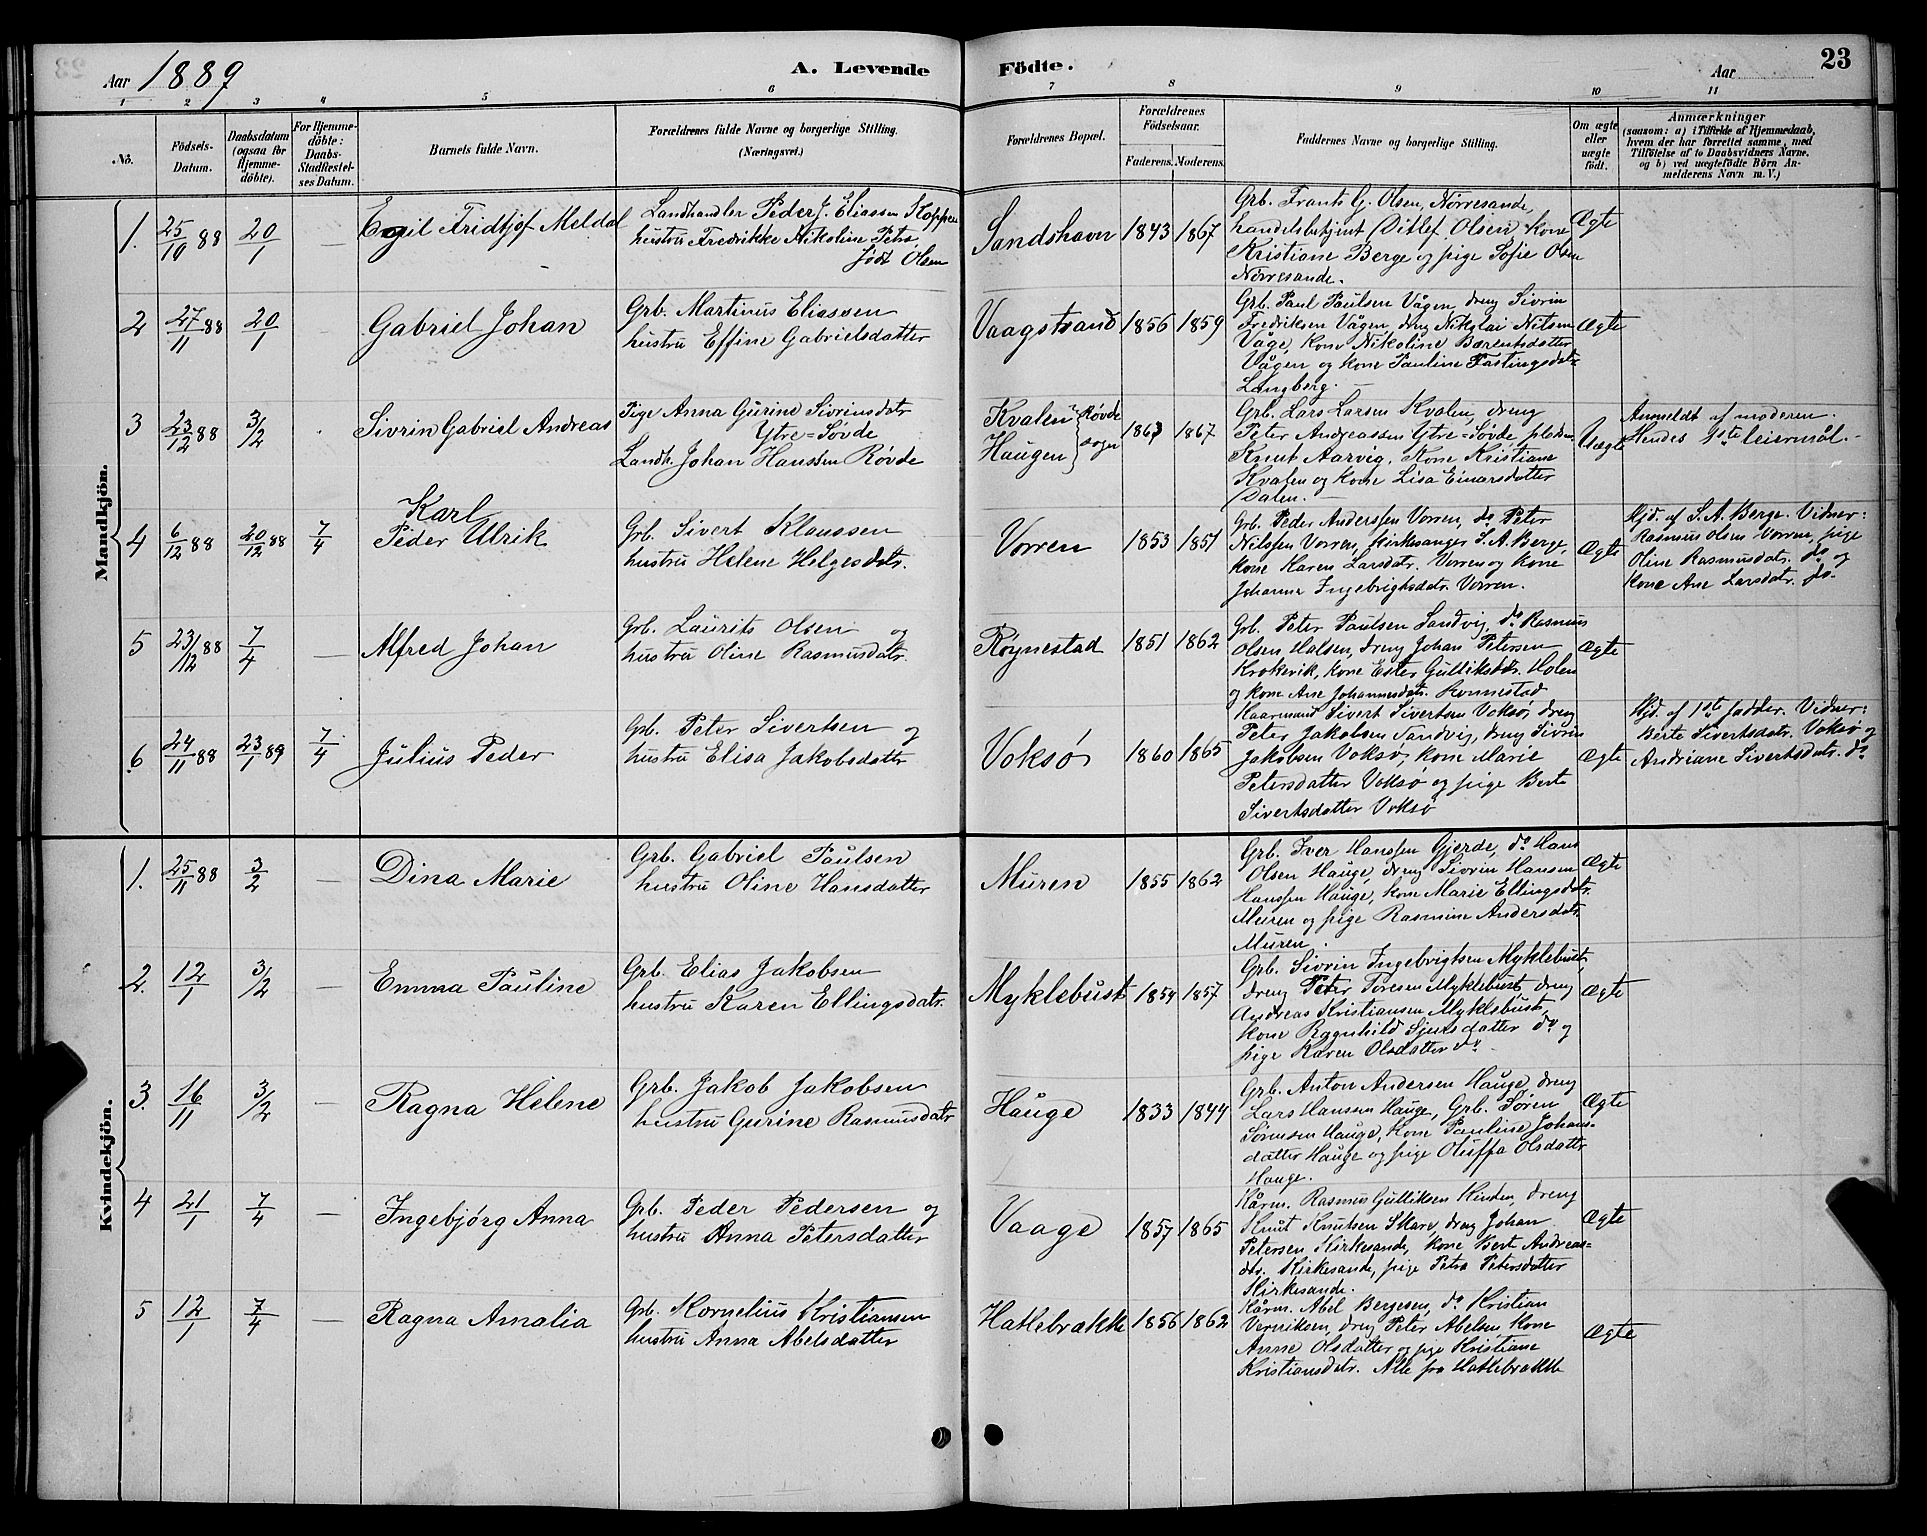 Aar 1889
A. Levende Fødte.
Aar
23
1 2 3 4 5 6 7 8 9 10 11
No.
Fødsels-
Datum.
Daabsdatum
(ogsaa for
Hjemme-
døbte).
For Hjemme-
døbte:
Daabs-
Stadfæstel-
ses Datum.
Barnets fulde Navn.
Forældrenes fulde Navne og borgerlige Stilling.
(Næringsvei.)
Forældrenes Bopæl.
Forældrenes
Fødselsaar.
Faderens. Moderens.
Faddernes Navne og borgerlige Stilling.
Om ægte
eller
uægte
født.
Anmærkninger
(saasom: a) i Tilfælde af Hjemmedaab,
hvem der har forrettet samme, med
Tilføielse af to Daabsvidners Navne,
og b) ved uægtefødte Børn An-
melderens Navn m. V.)
Mandkjøn.
1. 25/10 88 20/1 — Egil Fridtjof Meldal
Landhandler Peder J. Eliassen
hustru Fredrikke Nikoline Petra
født Olsen
Sandshavn 1843 1867
Grb. Frants G. Olsen, Nørresande,
handelsbetjent Ditlef Olsen, kone
Kristiane Berge og pige Sofie Olsen
Nørresande.
Ægte
2 27/11 88 20/1 — Gabriel Johan
Grb. Martinus Eliassen
hustru Effine Gabrielsdatter
Vaagstrand 1856 1859
Grb. Paul Paulsen Vågen, dreng Sivrin
Fredriksen Vågen, dreng Nikolai Nilsen
Våge, kone Nikoline Bærentsdatter
Vågen og kone Pauline Fastingsdatr
Langberg. —
Ægte
3 23/12 88 3/2 Sivrin Gabriel Andreas
Pige Anna Gurine Sivrinsdatr
Ytre=Søvde
Landh. Johan Hanssen Røvde
Kvalen } Røvde
Haugen } sogn
1863 1867
Grb. Lars Larsen Kvalen, dreng
Peter Andreassen Ytre=Søvde,
Knut Aarvig, Kone Kristiane
Kvalen og kone Lisa Einarsdatter
Dalen. —
Uægte
Anmeldt af moderen.
Hendes 1ste leiermål. —
4 6/12 88 20/12 88 7/4
Karl
Peder Ulrik
Grb. Sivert Klaussen
hustru Helene Helgesdatr.
Vorren 1853 1851
Grb. Peder Anderssen Vorren, do Peter
Nilssen Vorren, Kirkesanger S. A. Berge,
kone Karen Larsdatr. Vorren og kone
Johanne Ingebrigtsdatr. Vorren.
Ægte
Hjd. af S. A. Berge. Vidner:
Rasmus Olsen Vorren, pige
Oline Rasmusdatr. do og
kone Ane Larsdatr. do.
5 23/12 88 7/4 — Alfred Johan
Grb. Laurits Olsen og
hustru Oline Rasmusdatr.
Røynestad 1851 1862
Grb. Peter Paulsen Sandvig, do Rasmus
Olsen Halsen, dreng Johan Petersen
Krokevik, kone Ester Gulliksdtr. Holen
og kone Ane Johannesdatr. Rønnestad
Ægte
6 24/11 88 23/1 89 7/4 Julius Peder
Grb. Peter Sivertsen og
hustru Elisa Jakobsdatter
Voksø 1860 1865
Kaarmand Sivert Sivertsen Voksø, dreng
Peter Jakobsen Sandvig, dreng Sivrin
Jakobsen Voksø, kone Marie
Petersdatter Voksø og pige Berte
Sivertsdatter Voksø
Ægte
Hjd. af 1ste fadder. Vidner:
Berte Sivertsdatr. Voksø og
Andriane Sivertsdatr. do
Kvindekjøn.
1. 25/11 88 3/2 — Dina Marie
Grb. Gabriel Paulsen
hustru Oline Hansdatter
Muren 1855 1862
Grb. Iver Hanssen Gjerde, do Hans
Olsen Hauge, dreng Sivrin Hansen
Hanssen Hauge, kone Marie Ellingsdatr.
Muren og pige Rasmine Andersdatr.
Muren.
Ægte
2. 12/1 3/2 — Emma Pauline
Grb. Elias Jakobsen
hustru Karen Ellingsdatr.
Myklebust 1854 1857
Grb. Sivrin Ingebrigtsen Myklebust,
dreng Peter Toresen Myklebust, dreng
Andreas Kristiansen Myklebust,
kone Ragnhild datter do og
pige Karen Olsdatter do.
Ægte
3. 16/11 3/2 — Ragna Helene
Grb. Jakob Jakobsen
hustru Gurine Rasmusdatr
Hauge 1833 1844
Grb. Anton Andersen Hauge, dreng
Lars Hanssen Hauge, Grb. Søren
Sørensen Hauge, kone Pauline Johans-
datter Hauge og pige Oluffa Olsdatter
Hauge.
Ægte
4 21/1 7/4 — Ingebjørg Anna
Grb. Peder Pedersen og
hustru Anna Petersdatter
Vaage 1857 1865
Kårm. Rasmus Gulliksen Hinden, dreng
Knut Knutsen Skare, dreng Johan
Petersen Kirkesande, kone Berte Andreas-
dtr. Kirkesande, pige Petra Petersdatter
Kirkesande.
Ægte
5 12/1 7/4 — Ragna Amalia
Grb. Kornelius Kristiansen
hustru Anna Abelsdatter
Hatlebrække 1856 1862
Kårm. Abel Bergesen, do Kristian
Verniksen, dreng Peter Abelsen, kone
Anne Olsdatter og pige Kristiane
Kristiansdatr. Alle fra Hatlebrække
Ægte